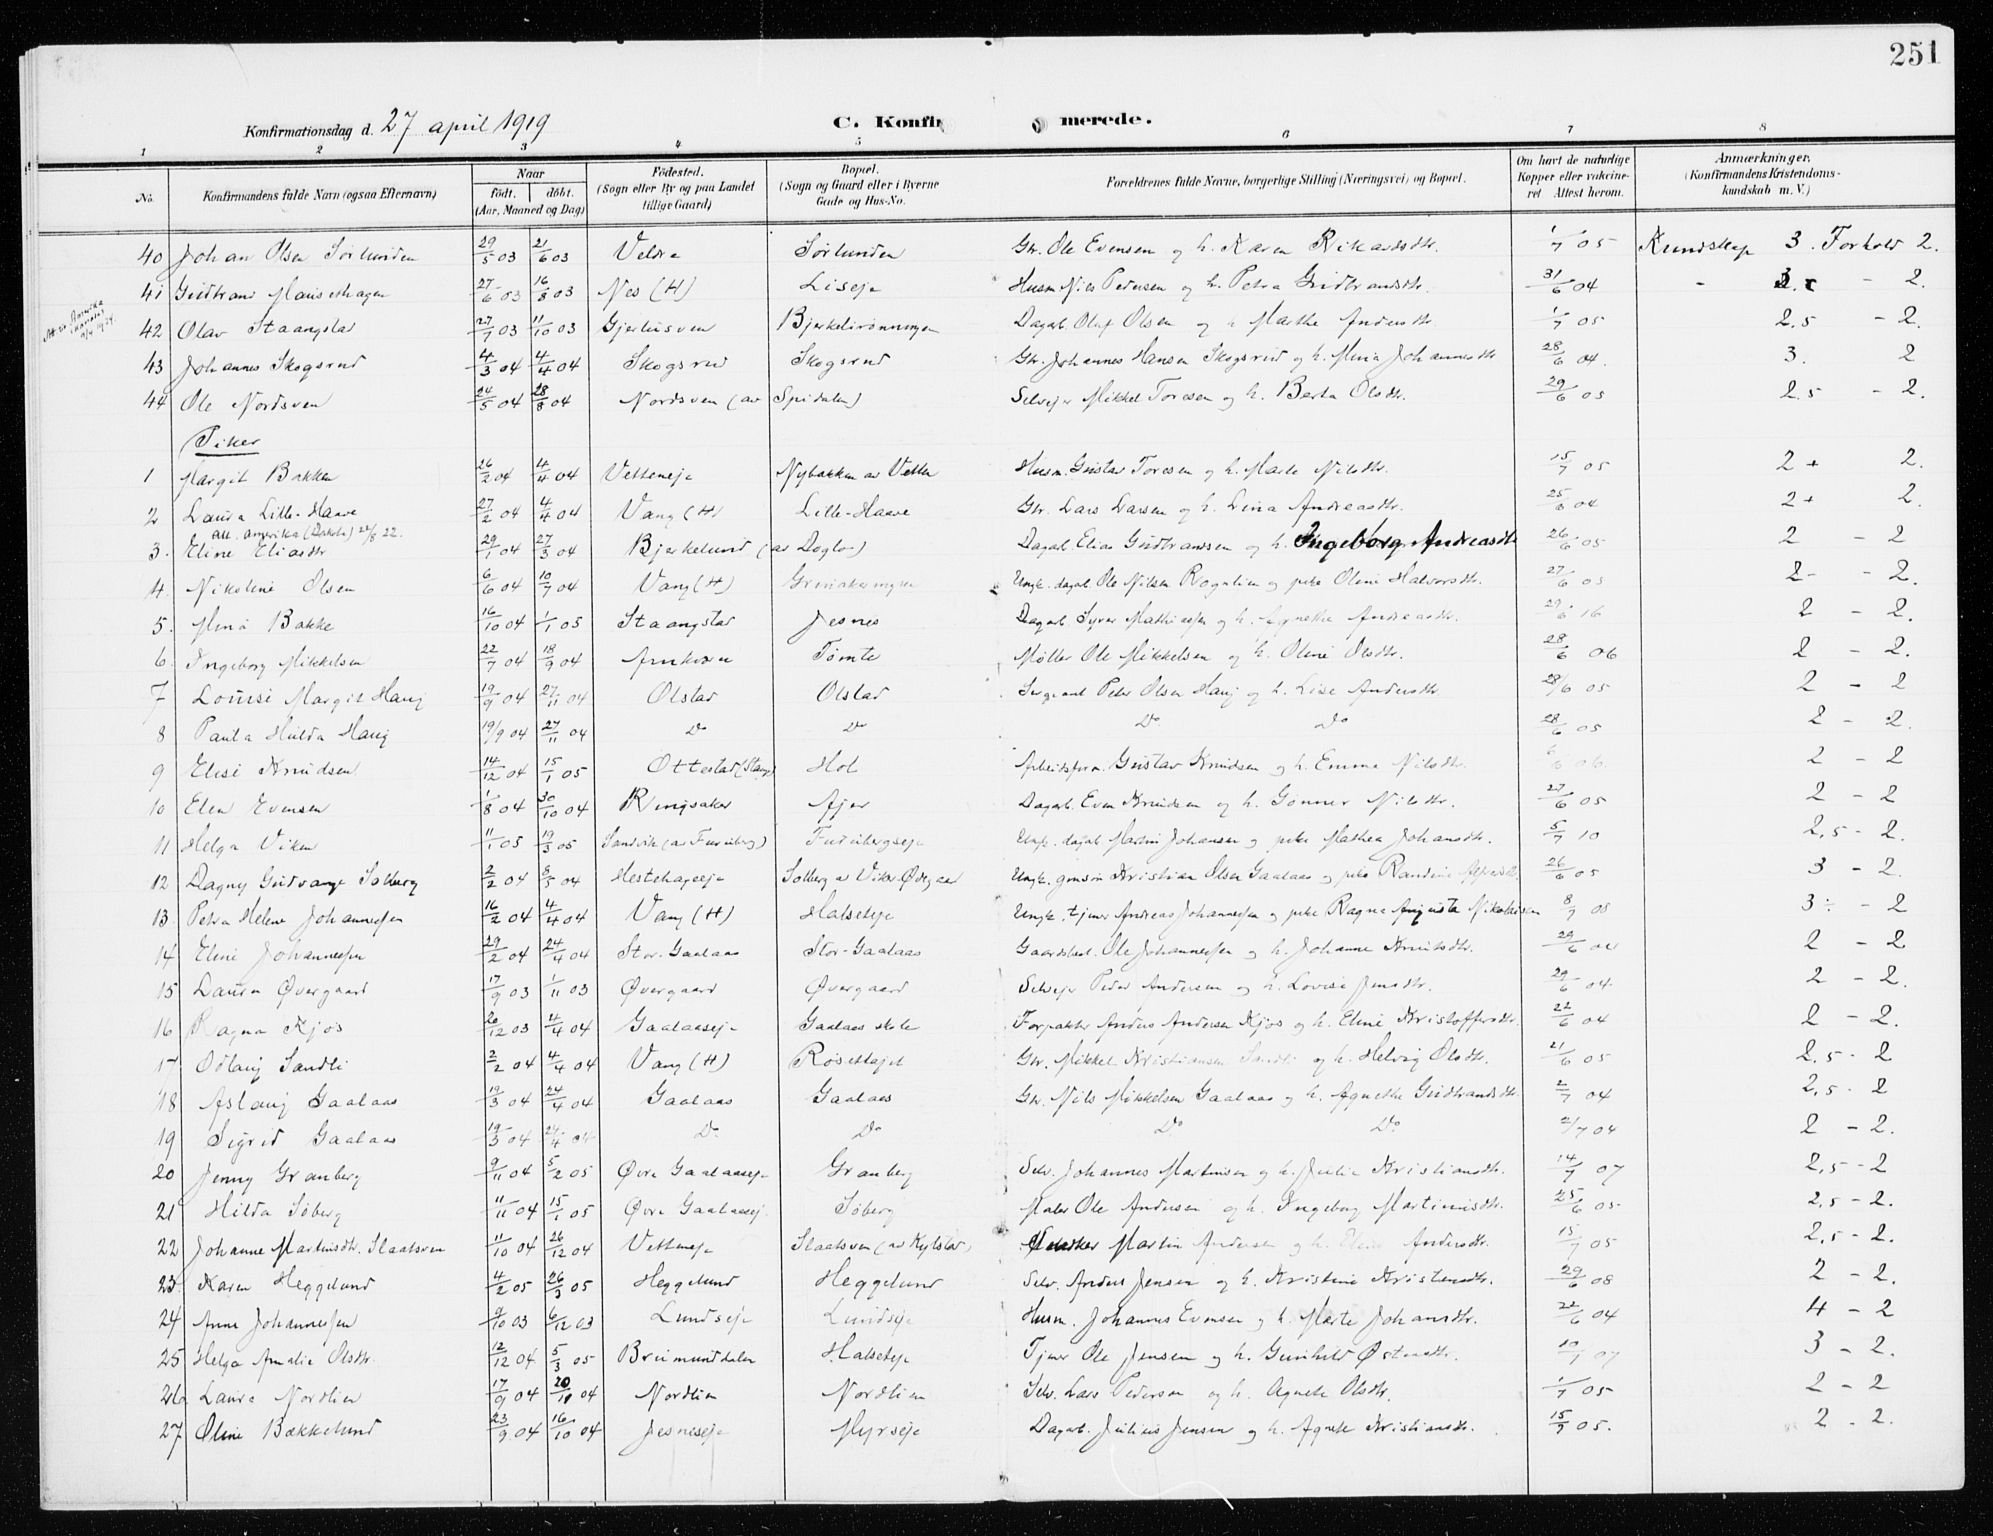 251
Konfirmationsdag d. 27 april 1919 C. Konfir merede.
1 2 3 4 5 6 7 8
No. Konfirmandens fulde Navn (ogsaa Efternavn) Naar födt. döbt. (Aar, Maaned og Dag) Födested. (Sogn eller By og paa Landet tillige Gaard) Bopæl. (Sogn og Gaard eller i Byerne Gade og Hus-No. Forældrenes fulde Navne, borgerlige Stilling (Næringsvei) og Bopæl. Om havt de naturlige Kopper eller vakcineret Attest herom. Anmærkninger. (Konfirmandens Kristendomskundskab m. V.)
40 Johan Olsen Sörlunden 29/5 03 21/6 03 Veldre Sörlunden Gbr. Ole Evensen og h. Karen Rikardsdtr. 1/7 05 Kundskap 3. Forhold 2.
41 Gudbrand Mausethagen 27/6 03 16/8 03 Nes (H) Liseje Husm Nils Pedersen og h. Petra Gudbrandsdtr. 31/6 04 - 2.
42 Olav Staangstad 27/7 03 11/10 03 Gjerlusven Bjerkelirönningen Dagarb. Oluf Olsen og h Marthe Andersdtr. 1/7 05 2,5 - 2.
43 Johannes Skogsrud 4/3 04 4/4 04 Skogsrud Skogsrud Gbr. Johannes Hansen Skogsrud og h. Mina Johannesdtr 28/6 04. 3. 2
44 Ole Nordsven 24/5 04 28/8 04 Nordsven (av Spidalen) Selvejer Mikkel Toresen og h. Berta Olsdtr. 29/6 05 2,5 - 2.
Piker
1 Margit Bakken 26/2 04 4/4 04 Vetteneje Nybakken av Vetten Husm. Gustav Toresen og h. Marte Nilsdtr. 15/7 05 2 + 2.
2 Laura Lille-Haave 27/2 04 4/4 04 Vang (H) Lille-Haave Gbr. Lars Larsen og h. Lina Andreasdtr. 25/6 04 2+ 2.
att. amerika (Dakota) 22.
3. Eline Eliasdtr 29/1 04 27/3 04 Bjerkelund (av Doglo) Dagarb. Elias Gudbrandsen og h. Ingeborg Andreasdtr 26/6 05 2 - 2
4. Nikoline Olsen 6/6 04 10/7 04 Vang (H) Ungk. dagarb. Ole Nilsen Rogalien og pike Oline Halvorsdtr. 27/6 05 2- - 2.
5. Mina Bakke 16/10 04 1/1 05 Staangstad Jesnes Dagarb. Syver Mathiassen og h. Agnethe Andreasdtr. 29/6 16 2 - 2.
6. Ingeborg Mikkelsen 22/7 04 18/9 04 Arnkværn Tömte Möller Ole Mikkelsen og h. Oline Olsdtr. 28/6 06 2 - 2.
7 Louise Margit Haug 19/9 04 27/11 04 Olstad Olstad Sergeant Peter Olsen Haug og h. Lise Andersdtr 28/6 05 2 - 2
8 Paula Hulda Haug 19/9 04 27/11 04 Do Do Do Do 28/6 05 2 - 2.
9 Elise Knudsen 14/12 04 15/1 05 Ottestad (Stange) Hol Arbeidsform. Gustav Knudsen og h. Emma Nilsdtr. 06. 2 - 2
10 Elen Evensen 1/8 04 30/10 04 Ringsaker Ajer Dagarb. Even Knudsen og h. Gönner Nilsdtr. 27/6 05 2 - 2
11 Helga Viken 11/1 05 19/3 05 Sandvik (av Furuberg) Furubergseje Ungk. dagarb Martin Johansen og pike Mathea Johansdtr. 5/7 10 2,5 - 2.
12 Dagny Gudvange Solberg 2/2 04 8/5 04 Hestehageeje Solberg av Viker Övegaard Ungk. Kristian Olsen Gaalaas og pike Randine 26/6 05 3 - 2.
13 Petra Helene Johannessen 16/2 04 4/4 04 Vang (H) Halseteje Ungk. tjener Andreas Johannessen og pike Ragna Augusta Nikolaisen 8/7 08 3÷ - 2
14 Eline Johannessen 29/2 04 24/4 04 Stor-Gaalaas Stor-Gaalaas Gaardsbest. Ole Johannessen og h. Johanne Knutsdtr. 29/6 04 2 - 2
15 Laura Övergaard 17/9 03 1/11 03 Övergaard Övergaard Selvejer Peder Andersen og h. Lovise Jensdtr. 29/6 04. 2 - 2.
16 Ragna Kjos 20/12 03 4/4 04 Gaalaaseje Gaalaas skole Forpakter Anders Andersen Kjos og h. Eline Kristoffersdtr. 22/6 04 2 - 2.
17 Odlaug Sandli 2/2 04 4/4 04 Vang (H) Rosetlajet Gbr. Mikkel Kristiansen Sandli og h. Helvig Olsdtr. 21/6 05 2,5 - 2
18 Aslaug Gaalaas 19/3 04 24/4 04 Gaalaas Gaalaas Gbr. Nils Mikkelsen Gaalaas og h. Agnethe Gudbrandsdtr 2/7 04 2,5 - 2
19 Sigrid Gaalaas 19/3 04 24/4 04 Do Do Do Do 2/7 04 2 - 2.
20 Jenny Granberg 9/11 04 5/2 05 Övre Gaalaaseje Granberg Selv. Johannes Martinsen og h. Julie Kristiansdtr. 14/7 07 2,5 - 2
21 Hilda Söberg 11/11 04 15/1 05 Övre Gaalaasej. Söberg Maler Ole Andersen og h. Ingeborg Martinusdtr. 25/6 05 2,5 - 2.
22 Johanne Martinsdtr. Slaatsven 11/10 04 26/12 04 Vetteneje Slaatsven (av Kylstad) Martin Andersen og h. Eline Andersdtr. 15/7 05 2,5 - 2.
23. Karen Heggelund 4/2 05 26/3 05 Heggelund Heggelund Selv. Anders Jensen og h. Kristine Kristensdtr. 29/6 08 2 - 2.
24 Anne Johannessen 9/10 03 6/12 03 Lundseje Lundseje Husm. Johannes Evensen og h. Marte Johansdtr. 22/6 04 4 - 2
25 Helga Amalie Olsdtr. 12/12 04 5/3 05 Breimunddalen Halseteje Tjener Ole Jensen og h. Gunhild Östensdtr. 10/7 07 3 - 2.
26 Laura Nordlien 17/9 04 20/10 04 Nordlien Nordlien Selv. Lars Pedersen og h. Agnete Olsdtr. 1/7 05 2 - 2
27 Oline Bækkelund 23/9 04 16/10 04 Jesneseje Myrseje Dagarb. Julius Jensen og h. Agnete Kristiansdtr. 15/7 05. 2 - 2.